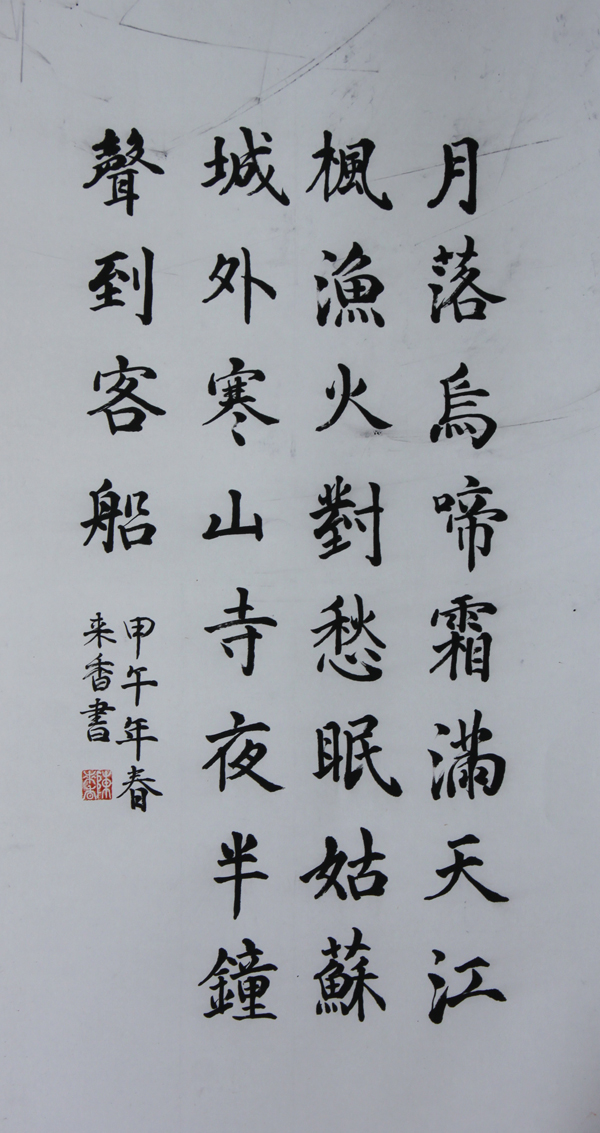 月落烏啼霜滿天江
楓漁火對愁眠姑蘇
城外寒山寺夜半鐘
聲到客船
甲午年春
来香書
陳来香